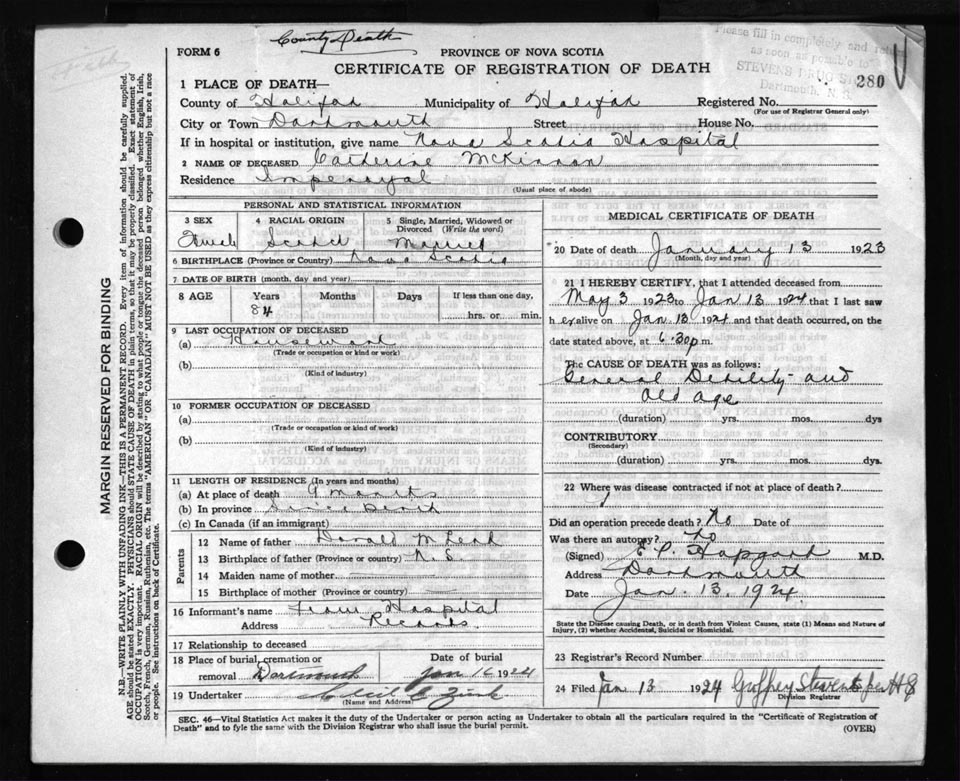 County Death
FORM 6
PROVINCE OF NOVA SCOTIA
CERTIFICATE OF REGISTRATION OF DEATH
Please fill in completely and
as soon as possible to
STEVENS DRUG
Dartmouth, N. S.
280
1 PLACE OF DEATH—
County of Halifax Municipality of Halifax Registered No.
(For use of Registrar General only)
City or Town Dartmouth Street House No.
If in hospital or institution, give name Nova Scotia Hospital
2 NAME OF DECEASED Catherine McKinnon
Residence Imperoyal
(Usual place of abode)
PERSONAL AND STATISTICAL INFORMATION
3 SEX 4 RACIAL ORIGIN 5 Single, Married, Widowed or Divorced (Write the word)
Female Scotch Married
6 BIRTHPLACE (Province or Country) Nova Scotia
7 DATE OF BIRTH (month, day and year)
8 AGE Years Months Days If less than one day,
84 hrs. or min.
9 LAST OCCUPATION OF DECEASED
(a) Housework
(Trade or occupation or kind or work)
(b)
(Kind of industry)
10 FORMER OCCUPATION OF DECEASED
(a)
(Trade or occupation or kind of work)
(b)
(Kind of industry)
11 LENGTH OF RESIDENCE (In years and months)
(a) At place of death 9 months
(b) In province Since birth
(c) In Canada (if an immigrant)
Parents
12 Name of father Donald McLeod
13 Birthplace of father (Province or country) N. S.
14 Maiden name of mother
15 Birthplace of mother (Province or country)
16 Informant's name From Hospital
Address Records.
17 Relationship to deceased
18 Place of burial, cremation or removal Dartmouth
Date of burial Jan 16 1924
19 Undertaker Cecil E. Zink
(Name and Address)
MEDICAL CERTIFICATE OF DEATH
20 Date of death January 13 1923
(Month, day and year)
21 I HEREBY CERTIFY, that I attended deceased from
May 3 1923 to Jan 13 1924 that I last saw
h er alive on Jan 13 1924 and that death occurred, on the
date stated above, at 6.30 p m.
The CAUSE OF DEATH was as follows:
General Debility and
old age
(duration) yrs. mos. dys
CONTRIBUTORY
(Secondary)
(duration) yrs. mos. dys.
22 Where was disease contracted if not at place of death?
Did an operation precede death? No Date of
Was there an autopsy? No
(Signed) E. P. Hapgood M.D.
Address Dartmouth
Date Jan. 13. 1924.
State the Disease causing Death, or in death from Violent Causes, state (1) Means and Nature of
Injury, (2) whether Accidental, Suicidal or Homicidal.
23 Registrar's Record Number
24 Filed Jan 13 1924 Goffrey Stevens per HS
Division Registrar
SEC. 46—Vital Statistics Act makes it the duty of the Undertaker or person acting as Undertaker to obtain all the particulars required in the "Certificate of Registration of
Death" and to fyle the same with the Division Registrar who shall issue the burial permit. (OVER)
MARGIN RESERVED FOR BINDING
N.B.—WRITE PLAINLY WITH UNFADING INK—THIS IS A PERMANENT RECORD. Every item of information should be carefully supplied.
AGE should be stated EXACTLY. PHYSICIANS should STATE CAUSE OF DEATH in plain terms, so that it may be properly classified. Exact statement of
OCCUPATION is very important. RACIAL ORIGIN will be described by stating to what people or tongue the deceased person belonged whether English, Irish,
Scotch, French, German, Russian, Ruthenian, etc. The terms "AMERICAN" OR "CANADIAN" MUST NOT BE USED as they express citizenship but not a race
or people. See instructions on back of Certificate.